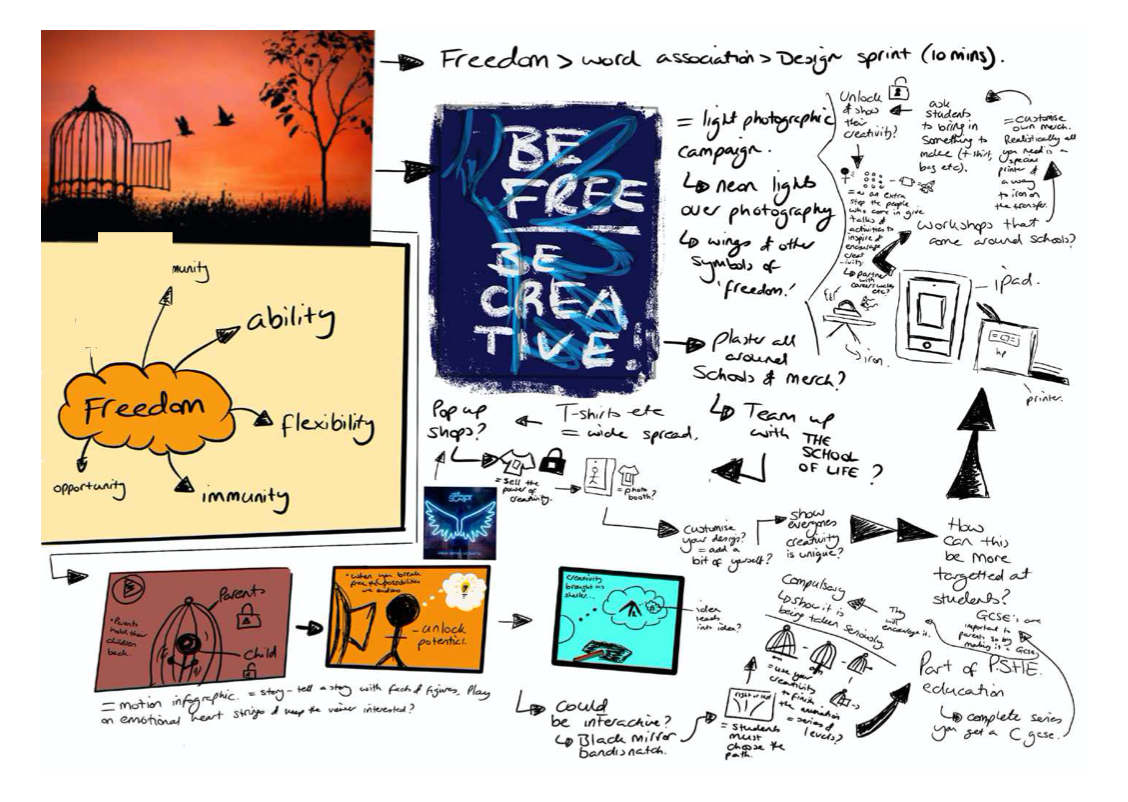 Freedom > word association > Design sprint (10 mins).
munity
ability
Freedom
flexibility
opportunity
immunity
BE
FREE
BE
CREA
TIVE.
= light photographic
campaign.
neon lights
over photography
wings & other
symbols of
'freedom.'
plaster all
around
Schools & merch?
Team up
with THE
SCHOOL
OF LIFE ?
T-shirts etc
= wide spread.
Pop up
shops?
= sell the
power of
creativity.
= photo
booth?
SCRIPT
customise
your design?
= add a
bit of yourself?
show
everyones
creativity
is unique?
How
can this
be more
targetted at
students?
ipad.
hp
printer.
iron.
workshops that
come around schools?
= customise
own merch.
Realistically all
you need is a
special
printer &
a way
to iron on
the transfer.
ask
students
to bring in
something to
make (t-shirt,
bag etc).
Unlock
& show
their
creativity?
= as an extra
step the people
who come in give
talks &
activities to
inspire &
encourage
creat
-ivity.
partner
with
careers
etc?
Parents
• Parents
hold their
children
back.
Child
= motion infographic. = story-tell a story with facts & figures. Play
on emotional heart strings & keep the viewer interested?
• when you break
free the possibilities
are endless
- unlock
potential.
creativity
brought us
shelter...
idea
leads
into idea?
could
be interactive?
Black mirror
bandisnatch.
right or left
= students
must
choose the
path.
= use your
creativity
to finish
the animation
= series of
levels?
Part of P.S.H.E.
education
complete series
you get a C gcse.
GCSE's are
important to
parents so by
making it a GCSE
They
will
encourage it.
Compulsory
show it is
being taken seriously.